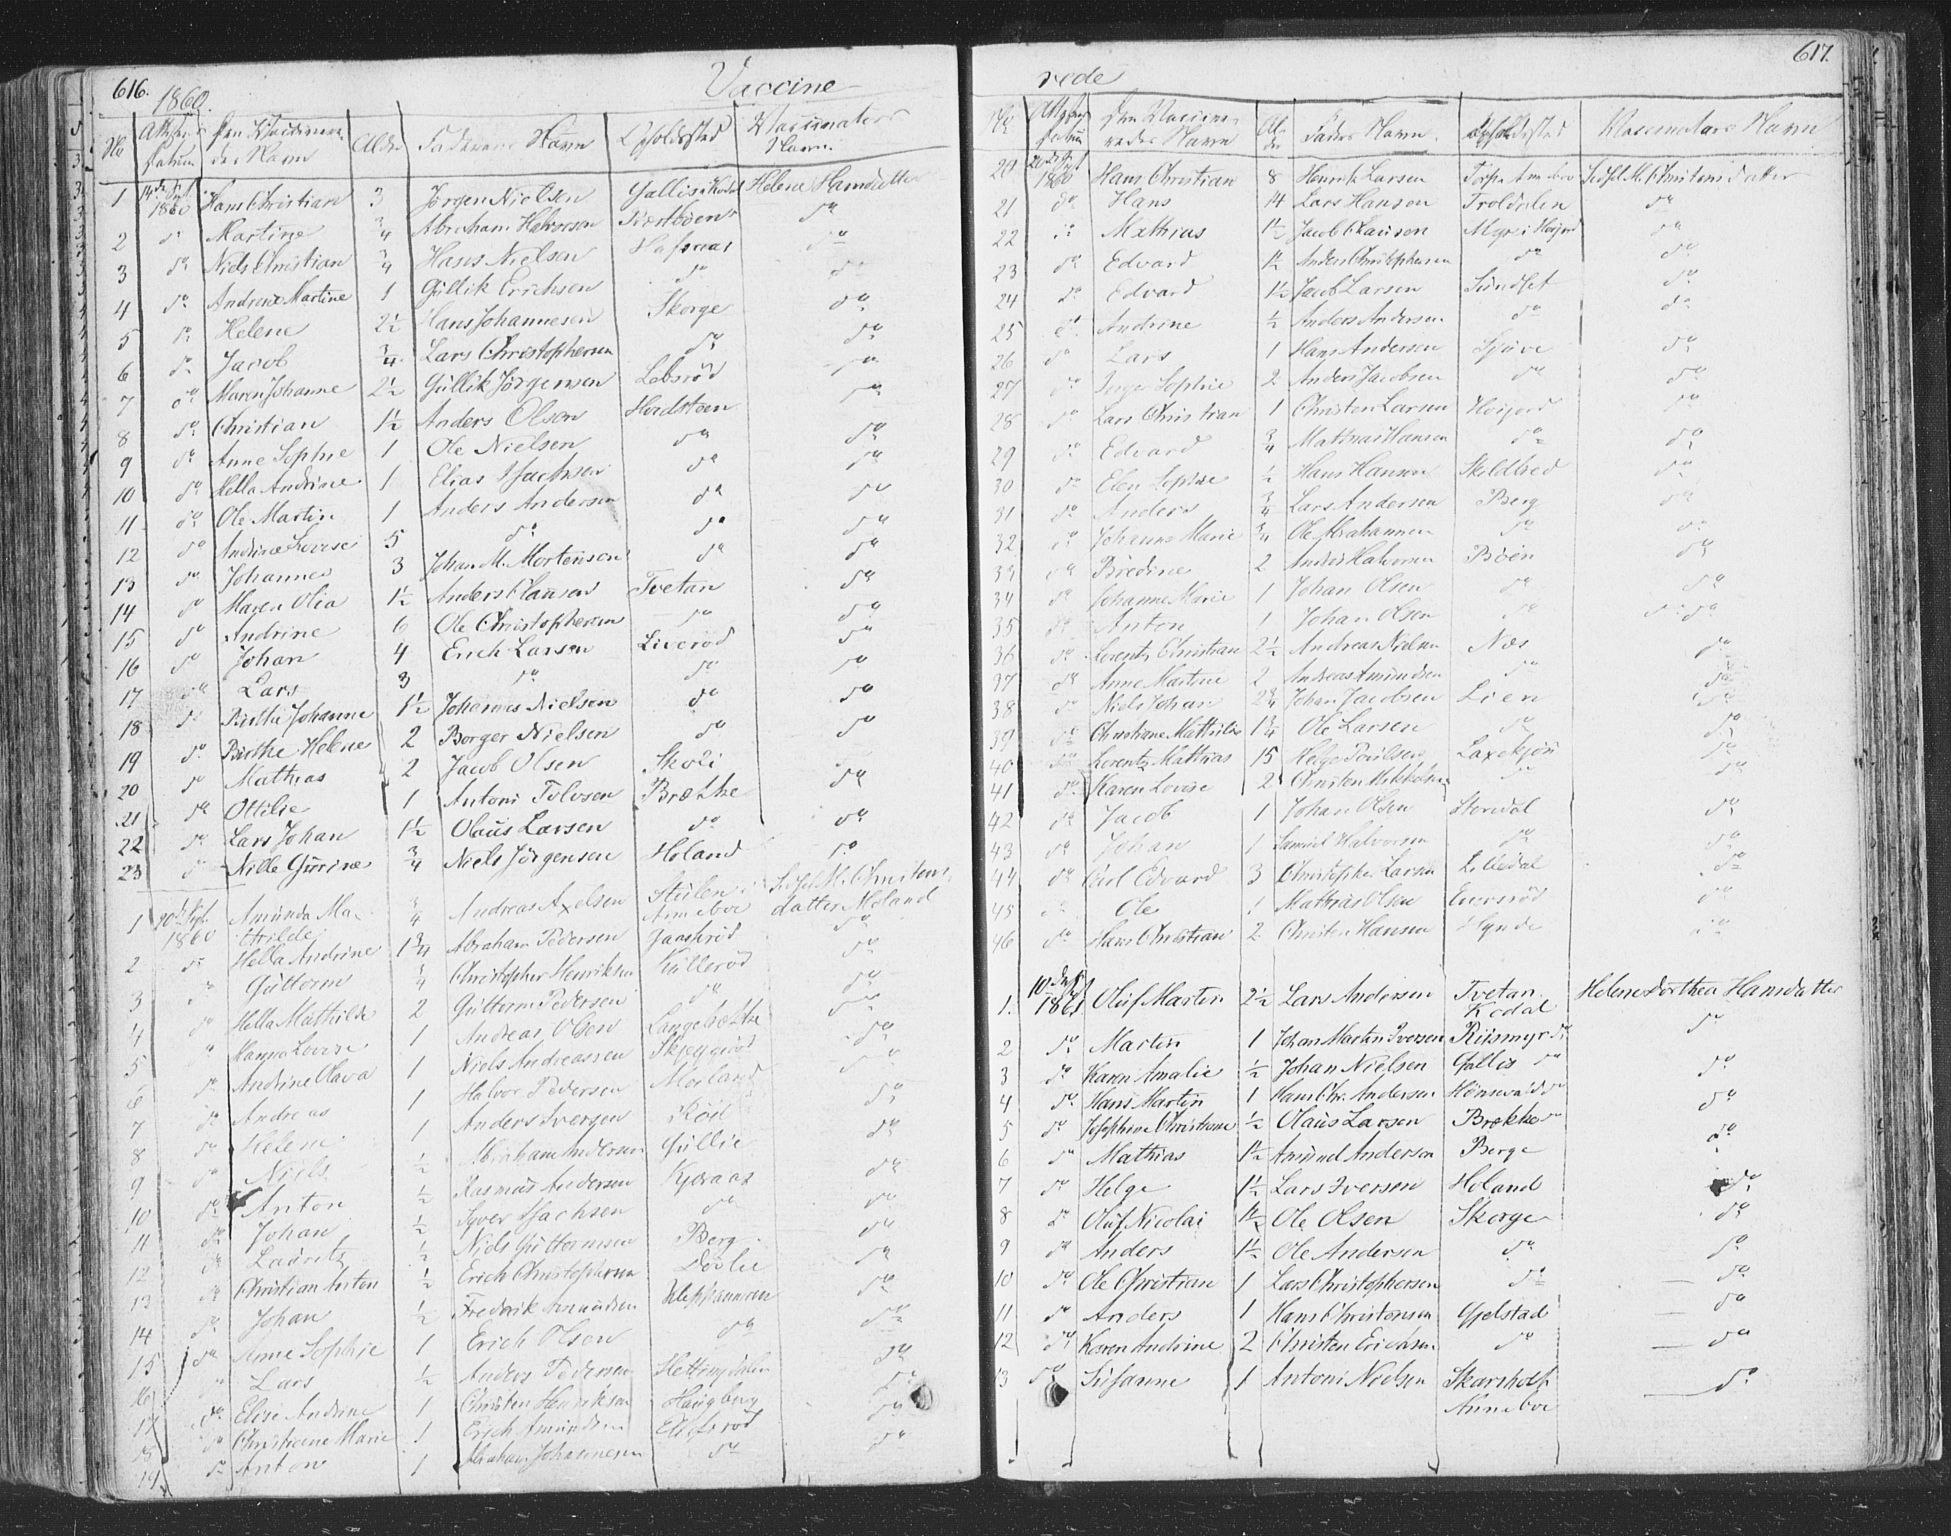 616.
1860.
Vaccine
No Attestens Datum Den Vaccineredes Navn Alder Faderens Navn Opholdssted Vaccinators Navn
1 14de Sept 1860 Hans Christian 3 Jørgen Nielsen Gallis i Kodal Helene Hansdatter
2 do Martine 3/4 Abraham Halvorsen do
3 do Niels Christian 3/4 Hans Nielsen Hafsaas do
4 do Andrene Martine 1 Gullik Erichsen do do
5 do Helene 2½ Hans Johannesen Skorge do
6 do Jacob 3/4 Lars Christophersen do do
7 do Maren Johanne 2½ Gullik Jørgensen Lebsrød do
8 do Christian 1½ Anders Olsen Hvidsteen do
9 do Anne Sophie 1 Ole Nielsen do do
10 do Hella Andrine 1 Elias Isachsen do do
11 do Ole Martin 1 Anders Andersen do do
12 do Andrine Lovise 5 do do do
13 do Johannes 3 Johan M. Mortensen do do
14 do Maren Olia 1½ Anders Clausen Tvetan do
15 do Andrine 6 Ole Christophersen do do
16 do Johan 4 Erich Larsen Liverød do
17 do Lars 3 do do do
18 do Birthe Johanne 1½ Johannes Nielsen do do
19 do Birthe Helene 2 Borger Nielsen do do
20 do Mathias 2 Jacob Olsen Skoli
21 do Ottilie 1 Antoni Tolvsen Brække do
22 do Lars Johan 1½ Olaus Larsen do do
23 do Nille Gurine 3/4 Niels Jørgensen Holand do
1 20de Sept. 1860 Amunda Mathilde 3/4 Andreas Axelsen Stulen i Anneboe M. Christensdatter Moland
2 do Hella Andrine 1 3/4 Abraham Pedersen do
3 do Guttorm 3/4 Christopher Henriksen Kullerød do
4 do Hella Mathilde 2 Guttorm Pedersen do do
5 do Hanna Lovise 1 Andreas Olsen Langebrække do
6 do Andrine Olava 1 Niels Andreassen Skjeggerød do
7 do Andreas 1 Halvor Pedersen Moeland do
8 do Helene 1 Anders Iversen Skoli do
9 do Niels ½ Abraham Andersen Gullie do
10 do Anton ½ Rasmus Andersen Kjeraas do
11 do Johan ½ Syver Isachsen do do
12 do Lauritz ½ Niels Guttormsen Berg do
13 do Christian Anton ½ Erich Christophersen Døvlie do
14 do Johan ½ Frederik Amundsen Klephammeren do
15 do Anne Sophie 1 Erich Olsen do do
16 do Lars ½ Anders Pedersen do
17 do Elise Andrine 1 Christen Henriksen Haugberg do
18 do Christiane Marie 1 Erich Amundsen Elisfrød do
19 do Anton 1 Abraham Johannesen do do
617.
rede
No Attestens Datum Den Vaccineredes Navn Alder Faders Navn Opholdssted Vaccinators Navn
20 20de Sept 1860 Hans Christian 8 Henrik Larsen Torp i Anneboe M. Christensdatter
21 do Hans 14 Lars Hansen Troldalen do
22 do Mathias 1½ Jacob Clausen Myre i Høijord do
23 do Edvard 1½ Anders Christophersen do do
24 do Edvard 1½ Jacob Larsen Sundset do
25 do Andrine ½ Anders Andersen do do
26 do Lars 1 Hans Andersen Sjuve do
27 do Inger Sophie 2 Anders Jacobsen do do
28 do Lars Christian 1 Christen Larsen Høijord do
29 do Edvard 3/4 Mathias Hansen do do
30 do Elen Sophie ½ Hans Hansen Skildbred do
31 do Anders 3/4 Lars Andersen Berg do
32 do Johanne Marie 3/4 Ole Abrahamsen do do
33 do Bredine 2 Anders Halvorsen Bøen do
34 do Johanne Marie 1 Johan Olsen do do
35 do Anton 1 Johan Olsen do do
36 do Lorentz Christian 2½ Andreas Nielsen Næs do
37 do Anne Martine 2 Andreas Amundsen do do
38 do Niels Johan 2 3/4 Johan Jacobsen Lien do
39 do Christiane Mathilde 1 3/4 Ole Larsen do do
40 do Lorentz Mathias 15 Helge Poulsen do
41 do Karen Lovise 2 Christen Mikkelsen do do
42 do Jacob 1 Johan Olsen Stordal do
43 do Johan 1 Samuel Halvorsen do do
44 do Carl Edvard 3 Christopher Larsen Lilledal do
45 do Ole 1 Mathias Olsen do
46 do Hans Christian 2 Christen Hansen Hynde do
1. 10de Sept 1861 Oluf Martin 2½ Lars Andersen Tvetan Kodal Helene Dorthea Hansdatter
2 do Martin 1 Johan Martin Iversen Riismyr do do
3 do Karen Amalie ½ Johan Nielsen Gallis do do
4 do Hans Martin 1 Hans Chr. Andersen do
5 do Josephine Christiane ½ Olaus Larsen Brække do do
6 do Mathias 1½ Amund Andersen Berge do
7 do Helge 1½ Lars Iversen Holand do
8 do Oluf Nicolai 1½ Ole Olsen Skorge do
9 do Anders 1½ Ole Andersen do do
10 do Ole Christian 1 Lars Christophersen do do
11 do Anders 1 Hans Christensen Gjelstad do
12 do Karen Andrine 2 Christen Erichsen do do
13 do Susanne 1 Antoni Nielsen Skarsholt Anneboe do